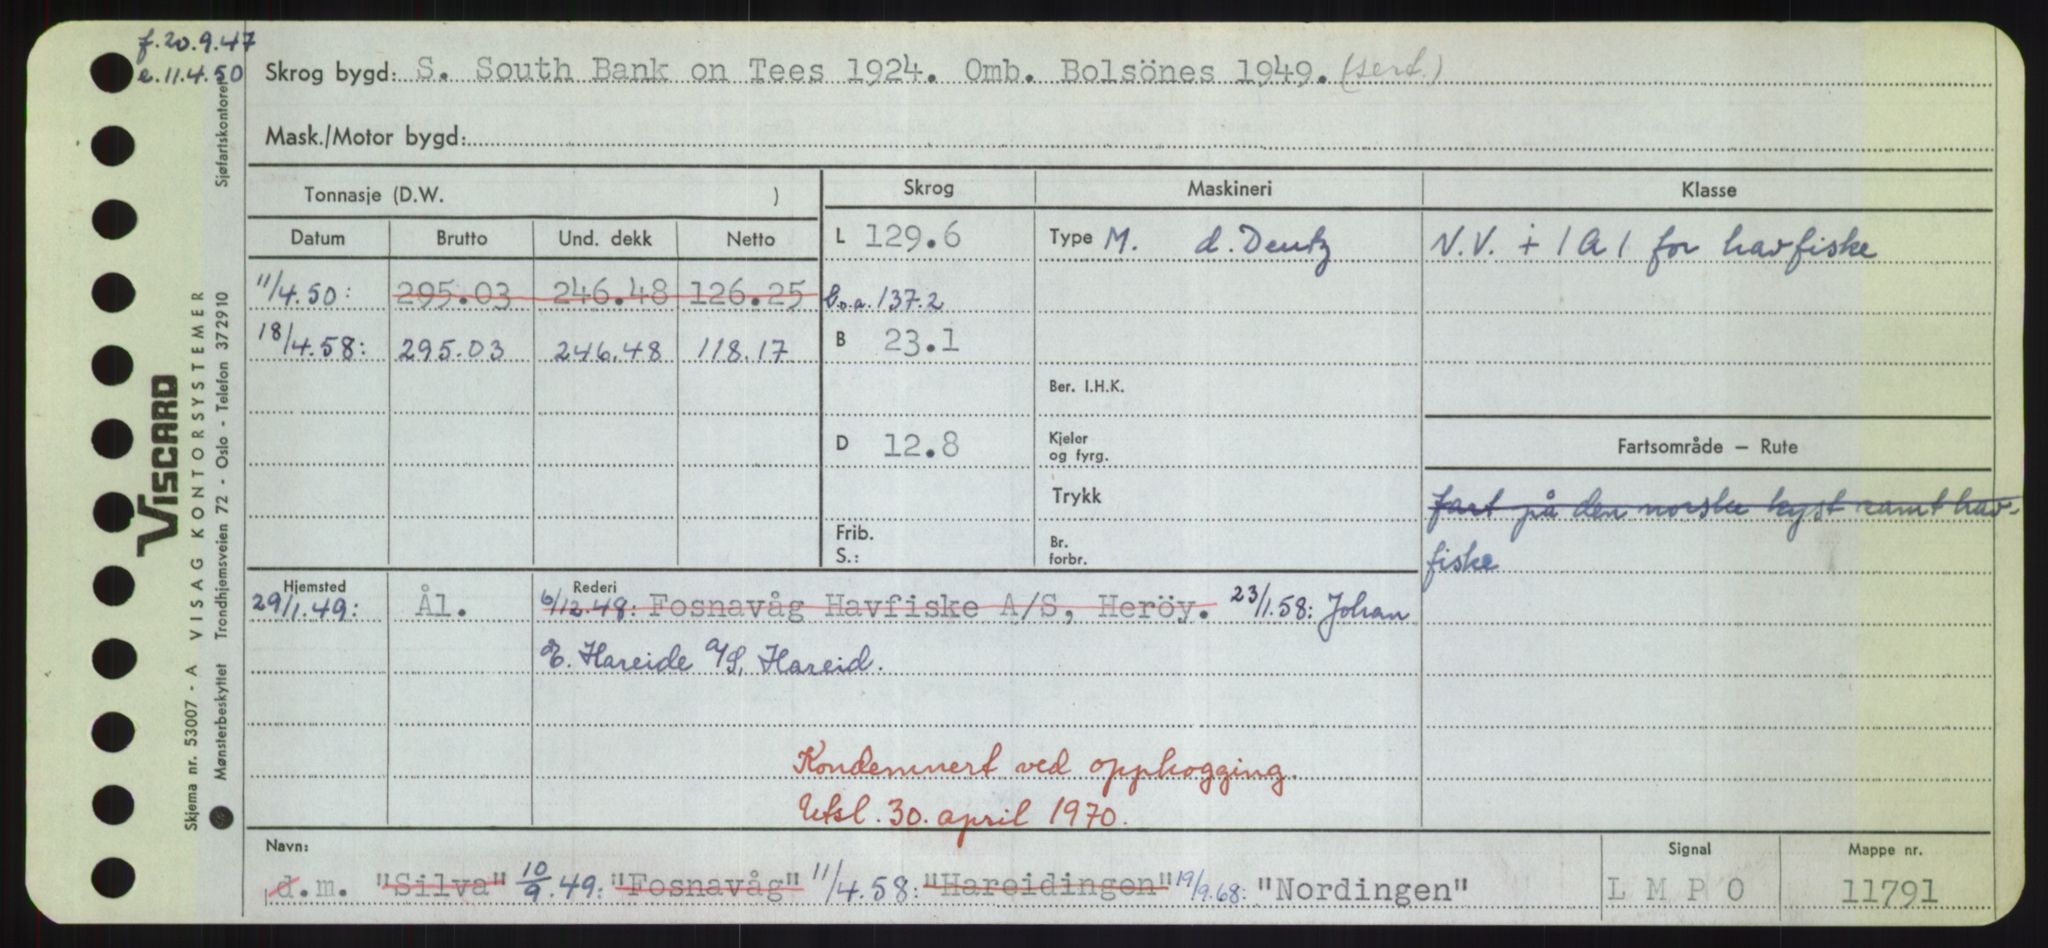 f. 20.9.47
e. 11.4.50
Skrog bygd: S. South Bank on Tees 1924. Omb. Bolsönes 1949. (sert.)
Mask./Motor bygd:
Tonnasje (D.W. )
Skrog Maskineri Klasse
Datum Brutto Und. dekk Netto
L 129.6 Type M. d. Deutz N.V. + 1A1 for havfiske
11/4.50: 295.03 246.48 126.25 L.o.a. 137.2
18/4.58: 295.03 246.48 118.17 B 23.1
Ber. I.H.K.
D 12.8 Kjeler og fyrg. Fartsområde — Rute
Trykk fart på den norske kyst samt hav-
Frib.
S.: Br. forbr. fiske
Hjemsted Rederi
29/1.49: Ål. 6/12.48: Fosnavåg Havfiske A/S, Heröy. 23/1.58: Johan
E. Hareide A/S, Hareid.
Kondemnert ved opphogging.
Utsl. 30. april 1970.
Navn: Signal Mappe nr.
d.m. "Silva" 10/9.49: "Fosnavåg" 11/4.58: "Hareidingen" 19/9.68: "Nordingen" L M P O 11791
VISCARD
Skjema nr. 53007 - A VISAG KONTORSYSTEMER
Mønsterbeskyttet Trondhjemsveien 72 - Oslo - Telefon 372910 Sjøfartskontoret